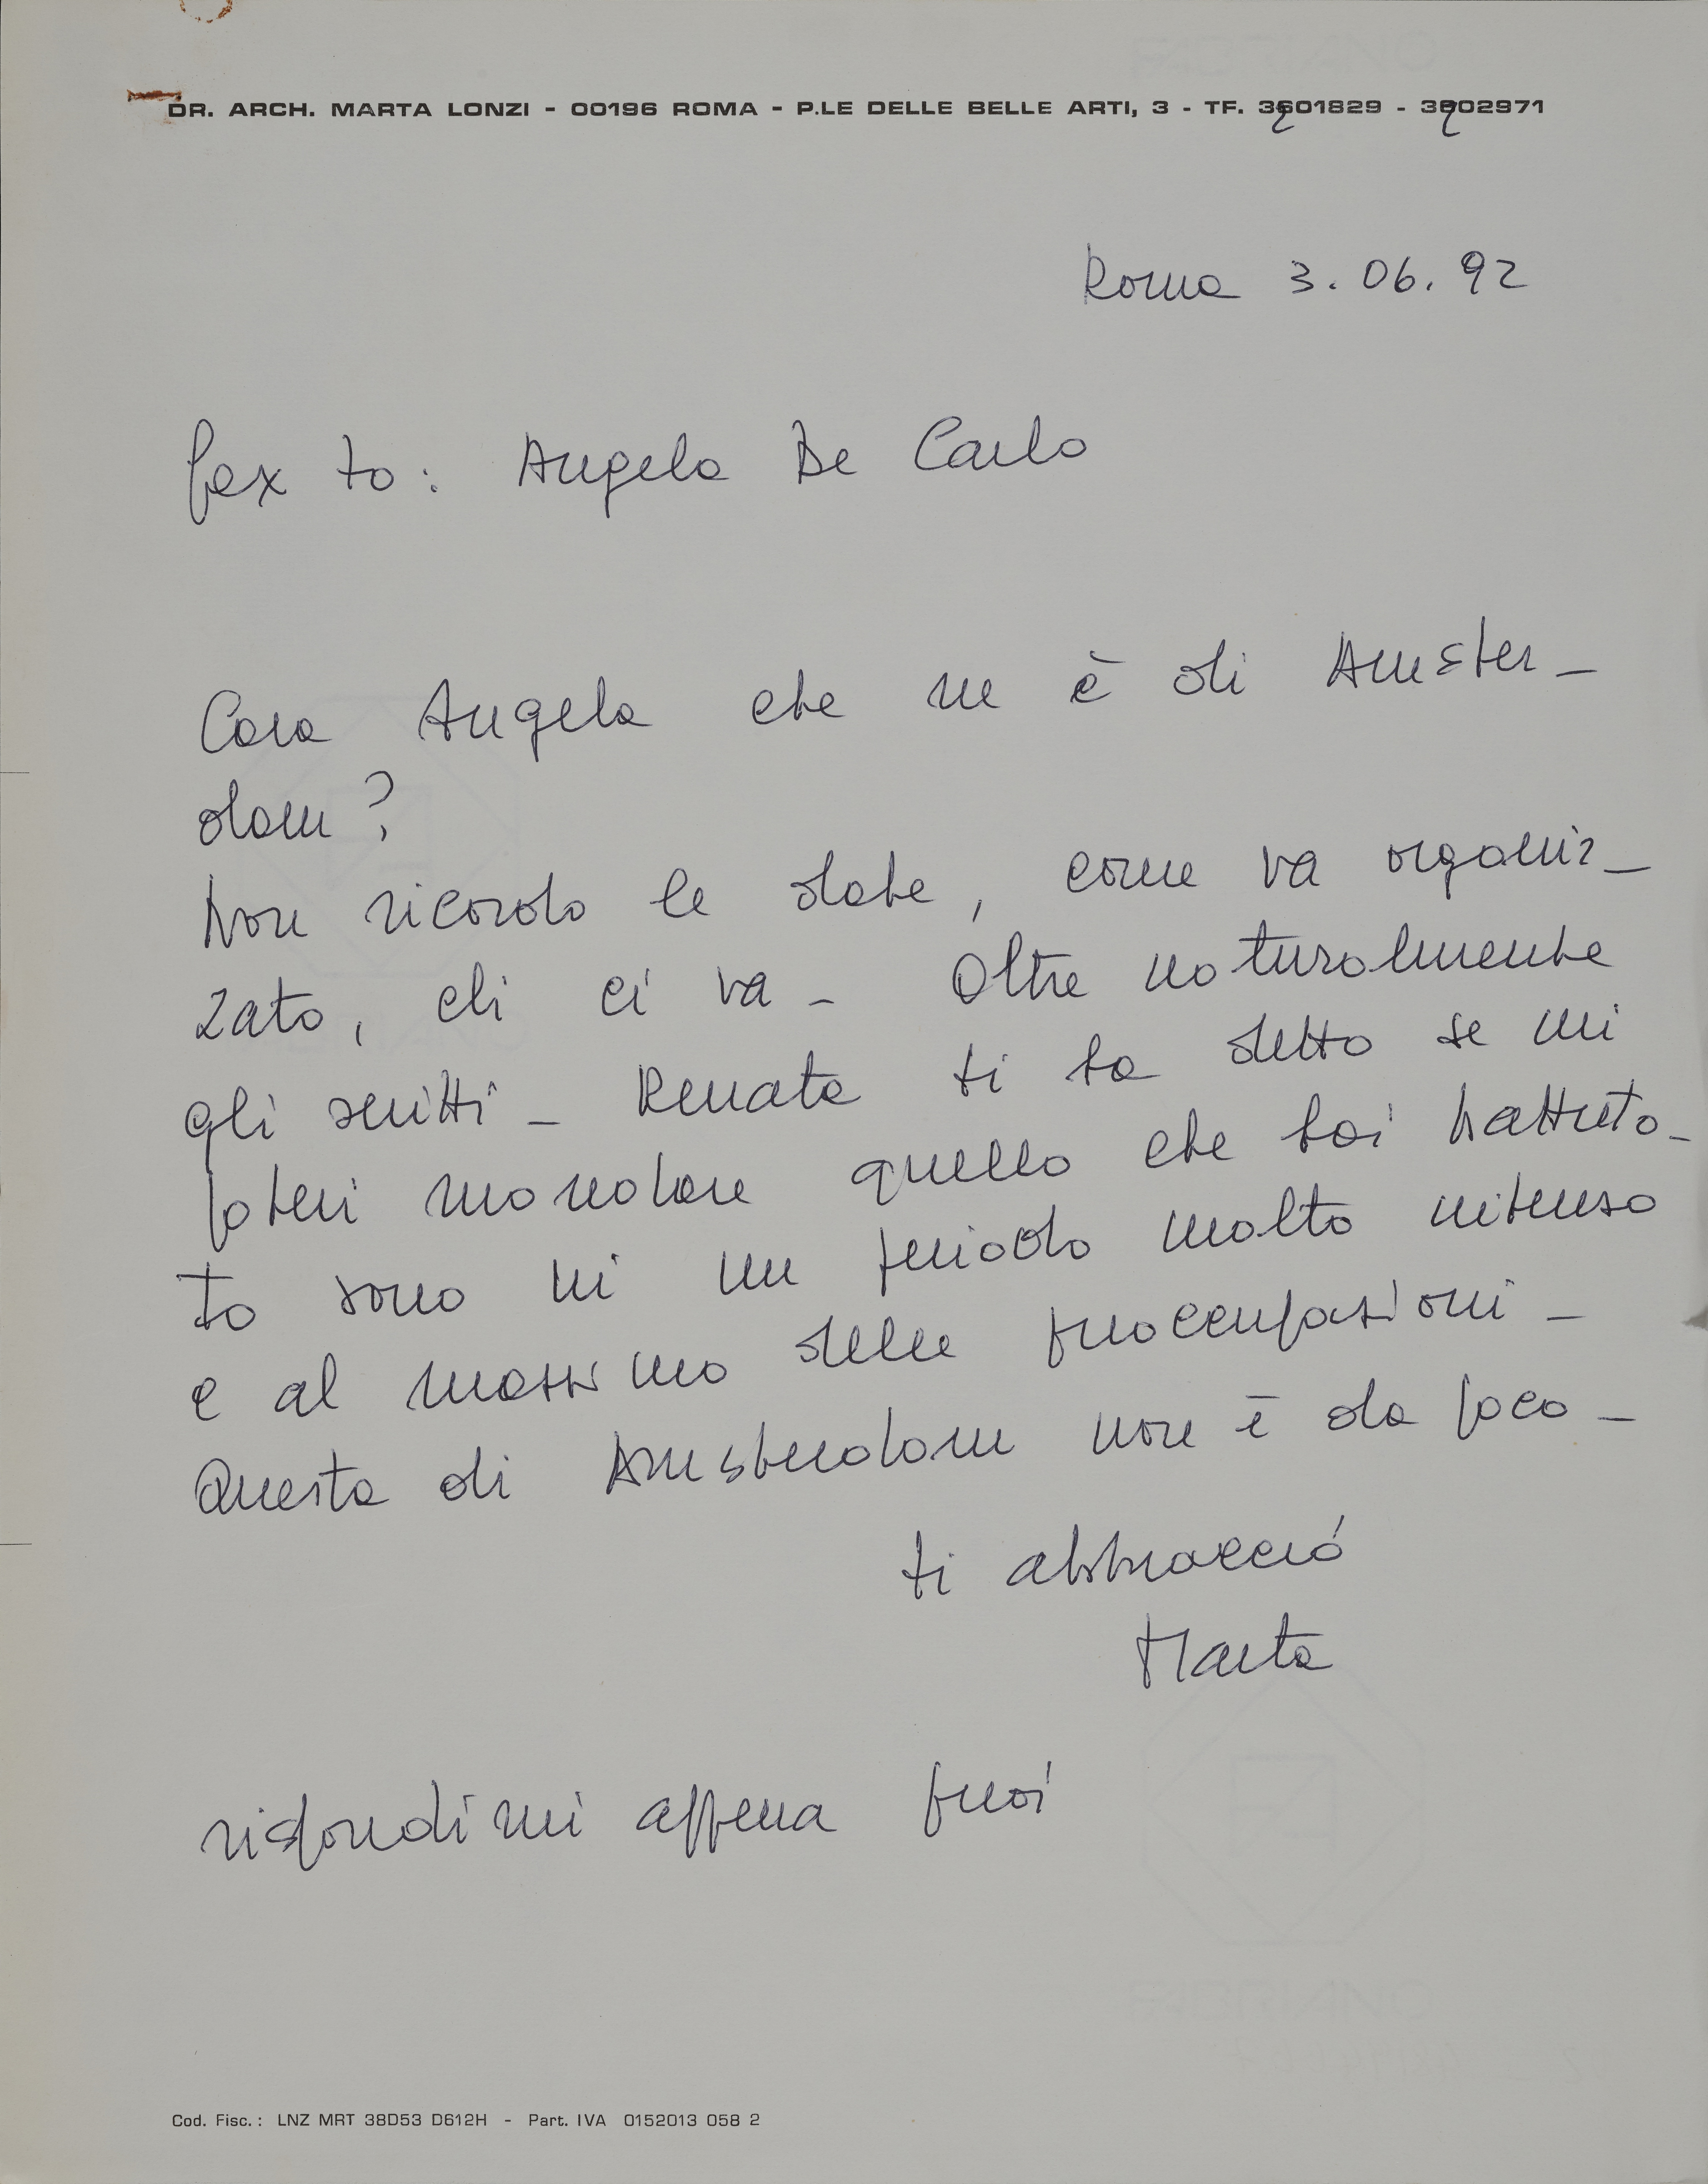 DR. ARCH. MARTA LONZI - 00196 ROMA - P.LE DELLE BELLE ARTI, 3 - TF. 3201829 - 3202971
Roma 3.06.92
fax to: Angela De Carlo
Cara Angela che ne è di Amster_
dam?
Non ricordo le date, come va organiz_
zato, chi ci va _ Oltre naturalmente
gli scritti _ Renata ti ha detto se mi
poteri mandare quello che hai battuto_
Io sono in un periodo molto intenso
e al massimo delle preoccupazioni _
Questa di Amsterdam non è da poco _
ti abbraccio
Marta
rispondimi appena puoi
Cod. Fisc.: LNZ MRT 38D53 D612H - Part. IVA 0152013 058 2